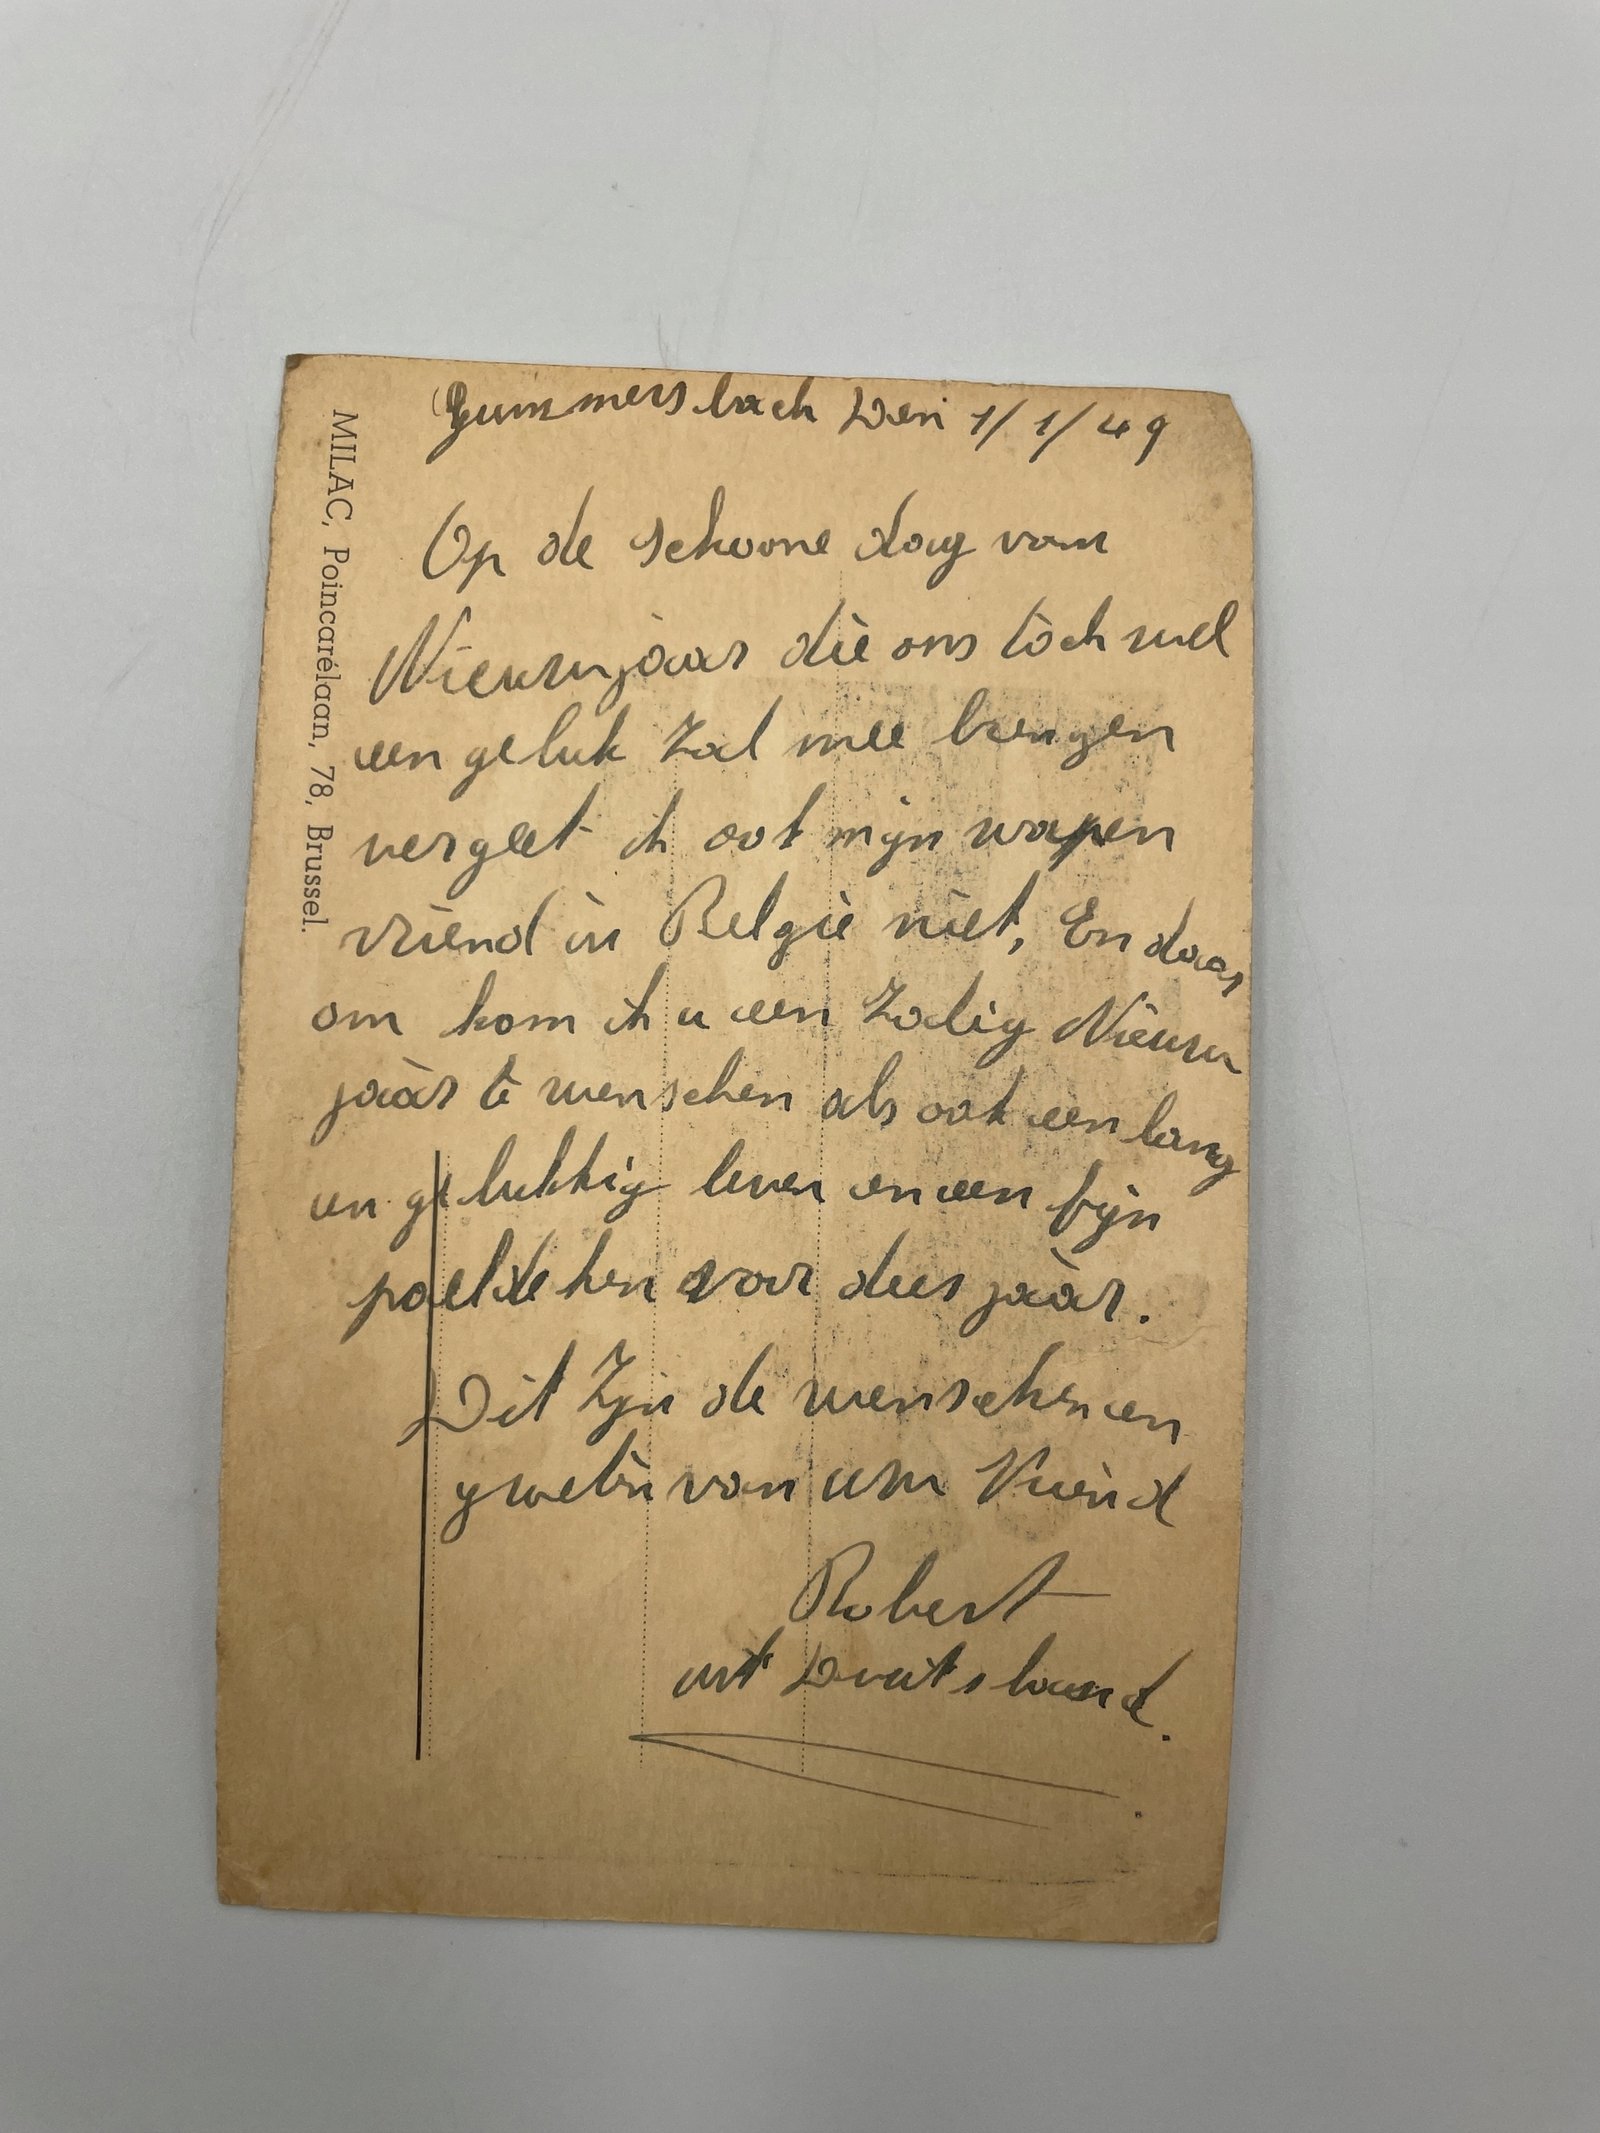 Gummersbach Den 1/1/49
Op de schoone dag van
Nieuwjaar die ons toch wel
een geluk zal mee brengen
vergeet ik ook mijn wapen
vriend in Belgie niet, En daar
om kom ik u een Zalig Nieuw
jaar te wenschen als ook een lang
en gelukkig leven en een fijn
voor dees jaar.
Dit Zijn de wenschen en
groeten van uw Vriend
Robert
uit Duitsland.
MILAC, Poincarélaan, 78, Brussel.